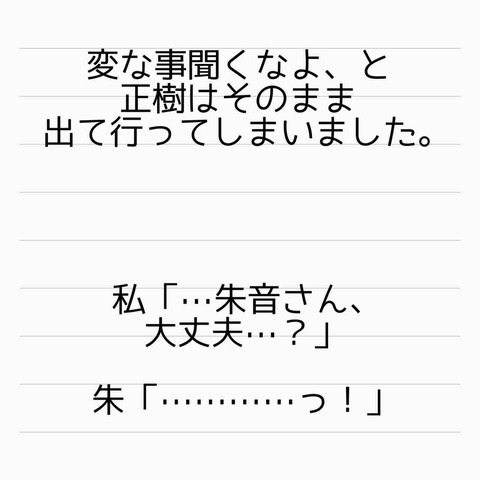 変な事聞くなよ、と
正樹はそのまま
出て行ってしまいました。
私「…朱音さん、
大丈夫…？」
朱「…………っ！」